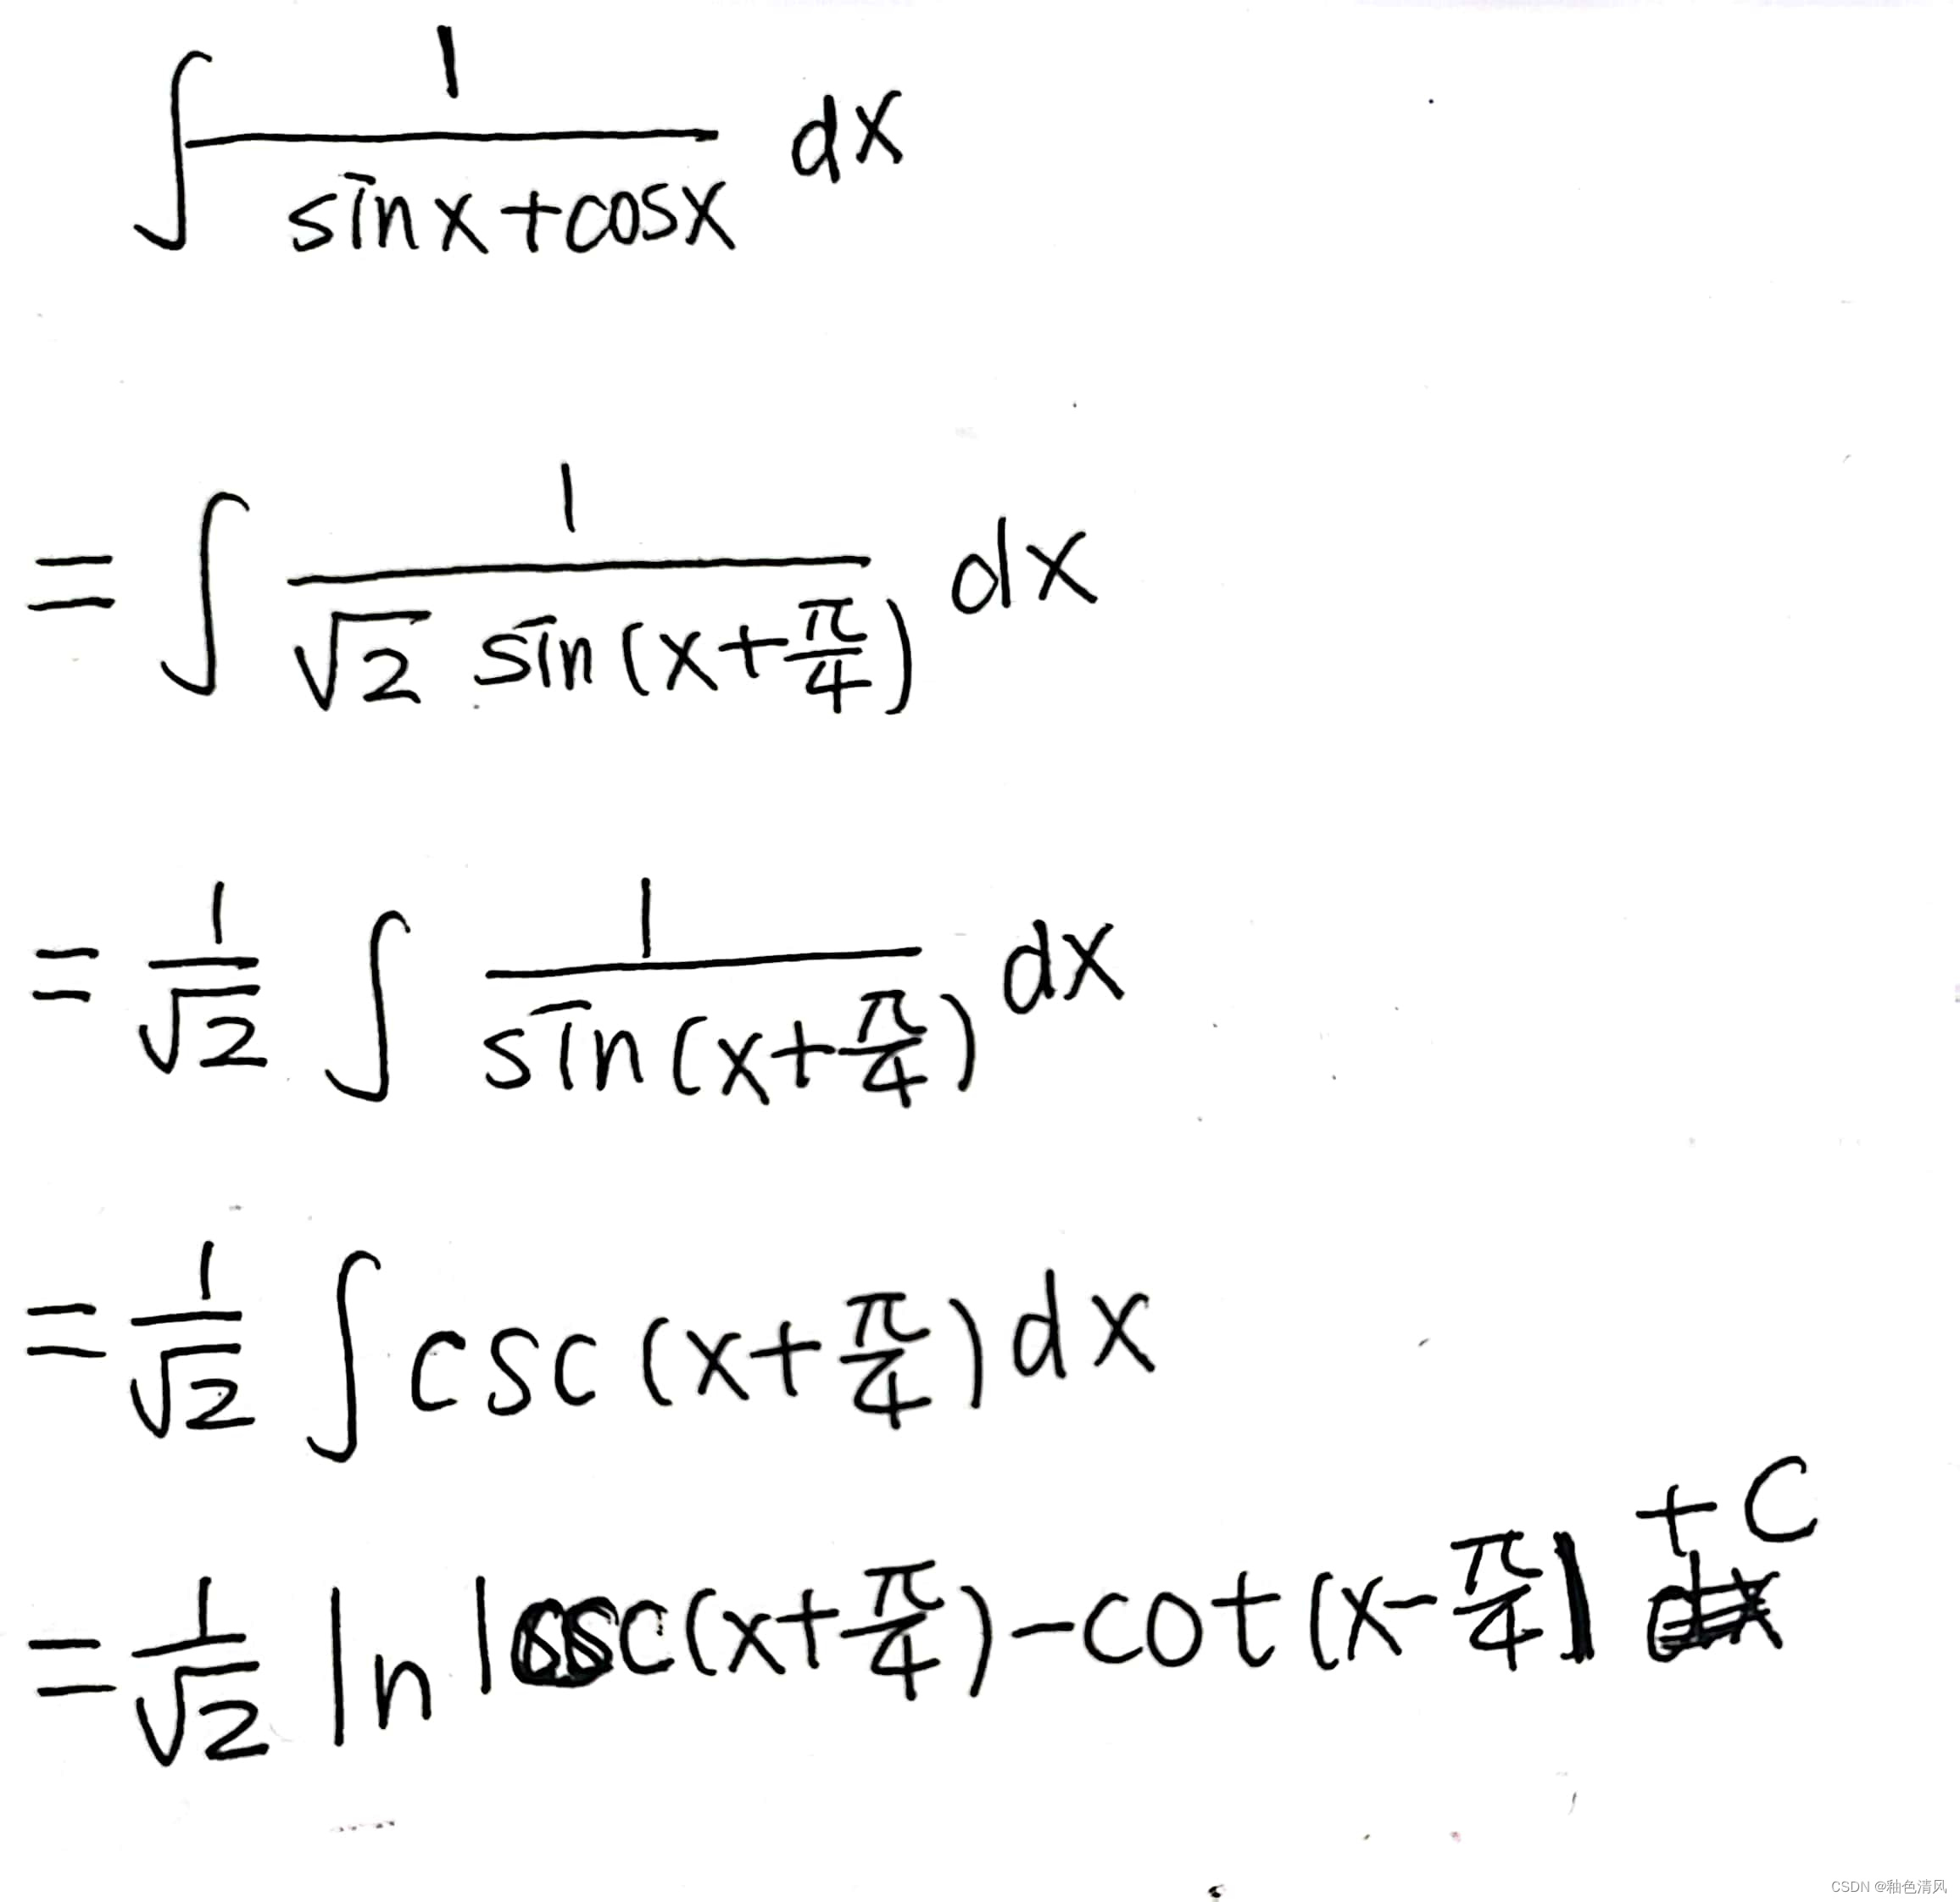 ∫ 1/(sinx+cosx) dx
= ∫ 1/(√2 sin(x+π/4)) dx
= 1/√2 ∫ 1/sin(x+π/4) dx
= 1/√2 ∫ csc(x+π/4)dx
= 1/√2 ln|csc(x+π/4)-cot(x-π/4)| +C
CSDN @釉色清风